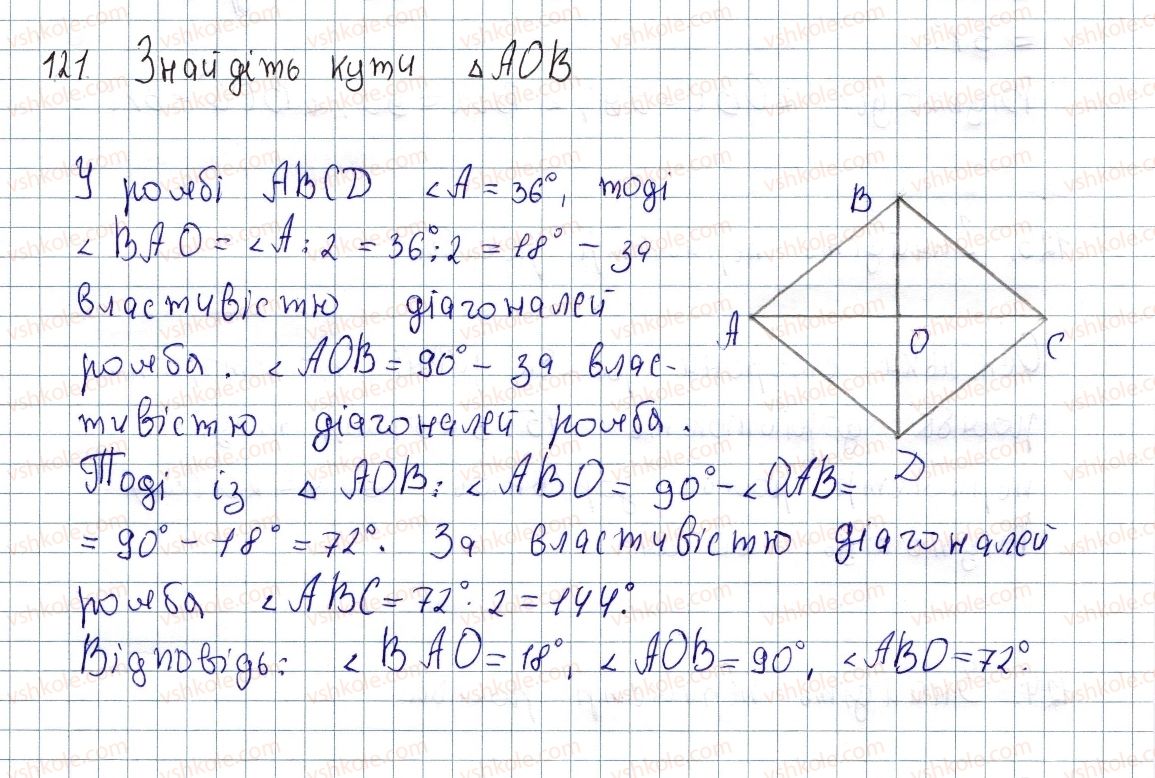 121. Знайдіть кути △ AOB
У ромбі ABCD ∠A = 36°, тоді
∠BAO = ∠A : 2 = 36° : 2 = 18° – за
властивістю діагоналей
ромба. ∠AOB = 90° – за влас-
тивістю діагоналей ромба.
Тоді із △ AOB: ∠ABO = 90° – ∠OAB =
= 90° – 18° = 72°. За властивістю діагоналей
ромба ∠ABC = 72° · 2 = 144°.
Відповідь: ∠BAO = 18°, ∠AOB = 90°, ∠ABO = 72°.
B
A
O
C
D
vshkole.com